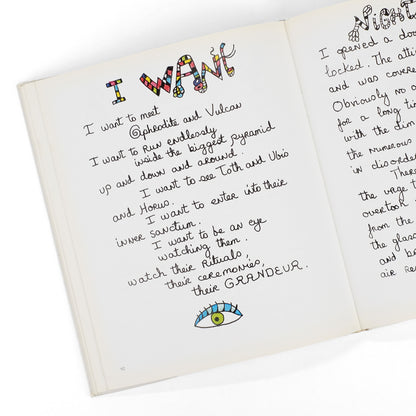 I WANT
I want to meet
Aphrodite and Vulcan
I want to Run endlessly
inside the biggest pyramid
up and down and around.
I want to see Toth and Ubio
and Horus.
I want to enter into their
inner Sanctum.
I want to be an eye
watching them.
watch their Rituals,
their ceremonies,
their GRANDEUR.
NIGHT
I opened a doo
locked. The atti
and was covere
Obviously no o
for a long tim
with the dim
the numerous
in disorde
There
the urge t
overtook
from the
the glass
and b
air re